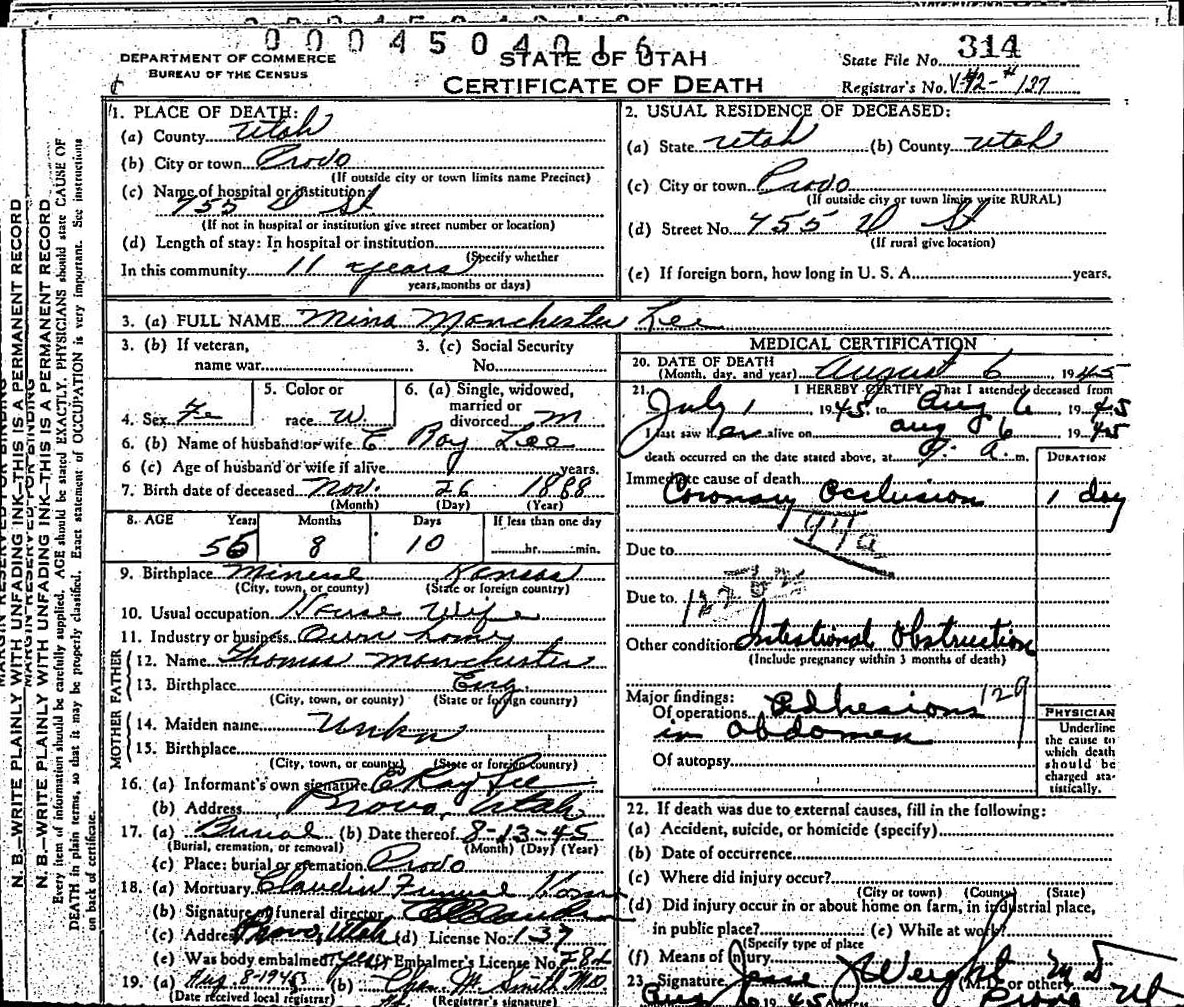 0 0 0 4 5 0 4 0 1 6
DEPARTMENT OF COMMERCE
BUREAU OF THE CENSUS
STATE OF UTAH
CERTIFICATE OF DEATH
State File No. 314
Registrar's No. V-42-#137
1. PLACE OF DEATH:
(a) County Utah
(b) City or town Provo
(If outside city or town limits name Precinct)
(c) Name of hospital or institution
755 D St
(If not in hospital or institution give street number or location)
(d) Length of stay: In hospital or institution
(Specify whether
In this community 11 years
years, months or days)
2. USUAL RESIDENCE OF DECEASED:
(a) State Utah (b) County Utah
(c) City or town Provo
(If outside city or town limits write RURAL)
(d) Street No. 755 D St
(If rural give location)
(e) If foreign born, how long in U. S. A. years.
3. (a) FULL NAME Mina Manchester Lee
3. (b) If veteran, 3. (c) Social Security
name war No.
5. Color or 6. (a) Single, widowed,
married or
4. Sex Fe race W. divorced M
6. (b) Name of husband or wife E Ray Lee
6 (c) Age of husband or wife if alive years.
7. Birth date of deceased Nov. 26 1888
(Month) (Day) (Year)
8. AGE Years Months Days If less than one day
56 8 10 hr. min.
9. Birthplace Mineral Kansas
(City, town, or county) (State or foreign country)
10. Usual occupation House Wife
11. Industry or business Own home
FATHER
12. Name Thomas Manchester
13. Birthplace Eng.
(City, town, or county) (State or foreign country)
MOTHER
14. Maiden name Unkn
15. Birthplace
(City, town, or county) (State or foreign country)
16. (a) Informant's own signature E Ray Lee
(b) Address Provo, Utah
17. (a) Burial (b) Date thereof 8-13-45
(Burial, cremation, or removal) (Month) (Day) (Year)
(c) Place: burial or cremation Provo
18. (a) Mortuary Claudin Funeral Home
(b) Signature of funeral director
(c) Address Provo, Utah (d) License No. 137
(e) Was body embalmed? yes Embalmer's License No. 782
19. (a) Aug 8-1945 (b) Chas. M. Smith MD
(Date received local registrar) (Registrar's signature)
MEDICAL CERTIFICATION
20. DATE OF DEATH
(Month, day, and year) August 6, 1945
21. I HEREBY CERTIFY That I attended deceased from
July 1, 1945 to Aug 6, 1945
I last saw her alive on Aug 6 1945
death occurred on the date stated above, at 9. a. m.
DURATION
Immediate cause of death
Coronary Occlusion 1 day
Due to
Due to
Other condition Intestional Obstruction
(Include pregnancy within 3 months of death)
Major findings: 129
Of operations Adhesions
in abdomen
Of autopsy
PHYSICIAN
Underline
the cause to
which death
should be
charged sta-
tistically.
22. If death was due to external causes, fill in the following:
(a) Accident, suicide, or homicide (specify)
(b) Date of occurrence
(c) Where did injury occur?
(City or town) (County) (State)
(d) Did injury occur in or about home on farm, in industrial place,
in public place? (e) While at work?
(Specify type of place
(f) Means of injury
23. Signature Jesse J Weight MD (M.D. or other)
Aug 6 1945 Address Provo Ut
N. B.—WRITE PLAINLY WITH UNFADING INK—THIS IS A PERMANENT RECORD
N. B.—WRITE PLAINLY WITH UNFADING INK—THIS IS A PERMANENT RECORD
Every item of information should be carefully supplied. AGE should be stated EXACTLY. PHYSICIANS should state CAUSE OF
DEATH in plain terms, so that it may be properly classified. Exact statement of OCCUPATION is very important. See instructions
on back of certificate.